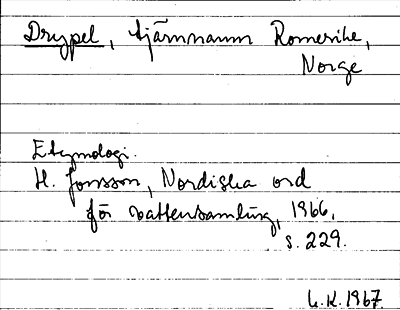 Drypel, tjärnnamn Romerike,
Norge
Etymologi.
H. Jonsson, Nordiska ord
för vattensamling, 1966,
s. 229.
G.K. 1967.